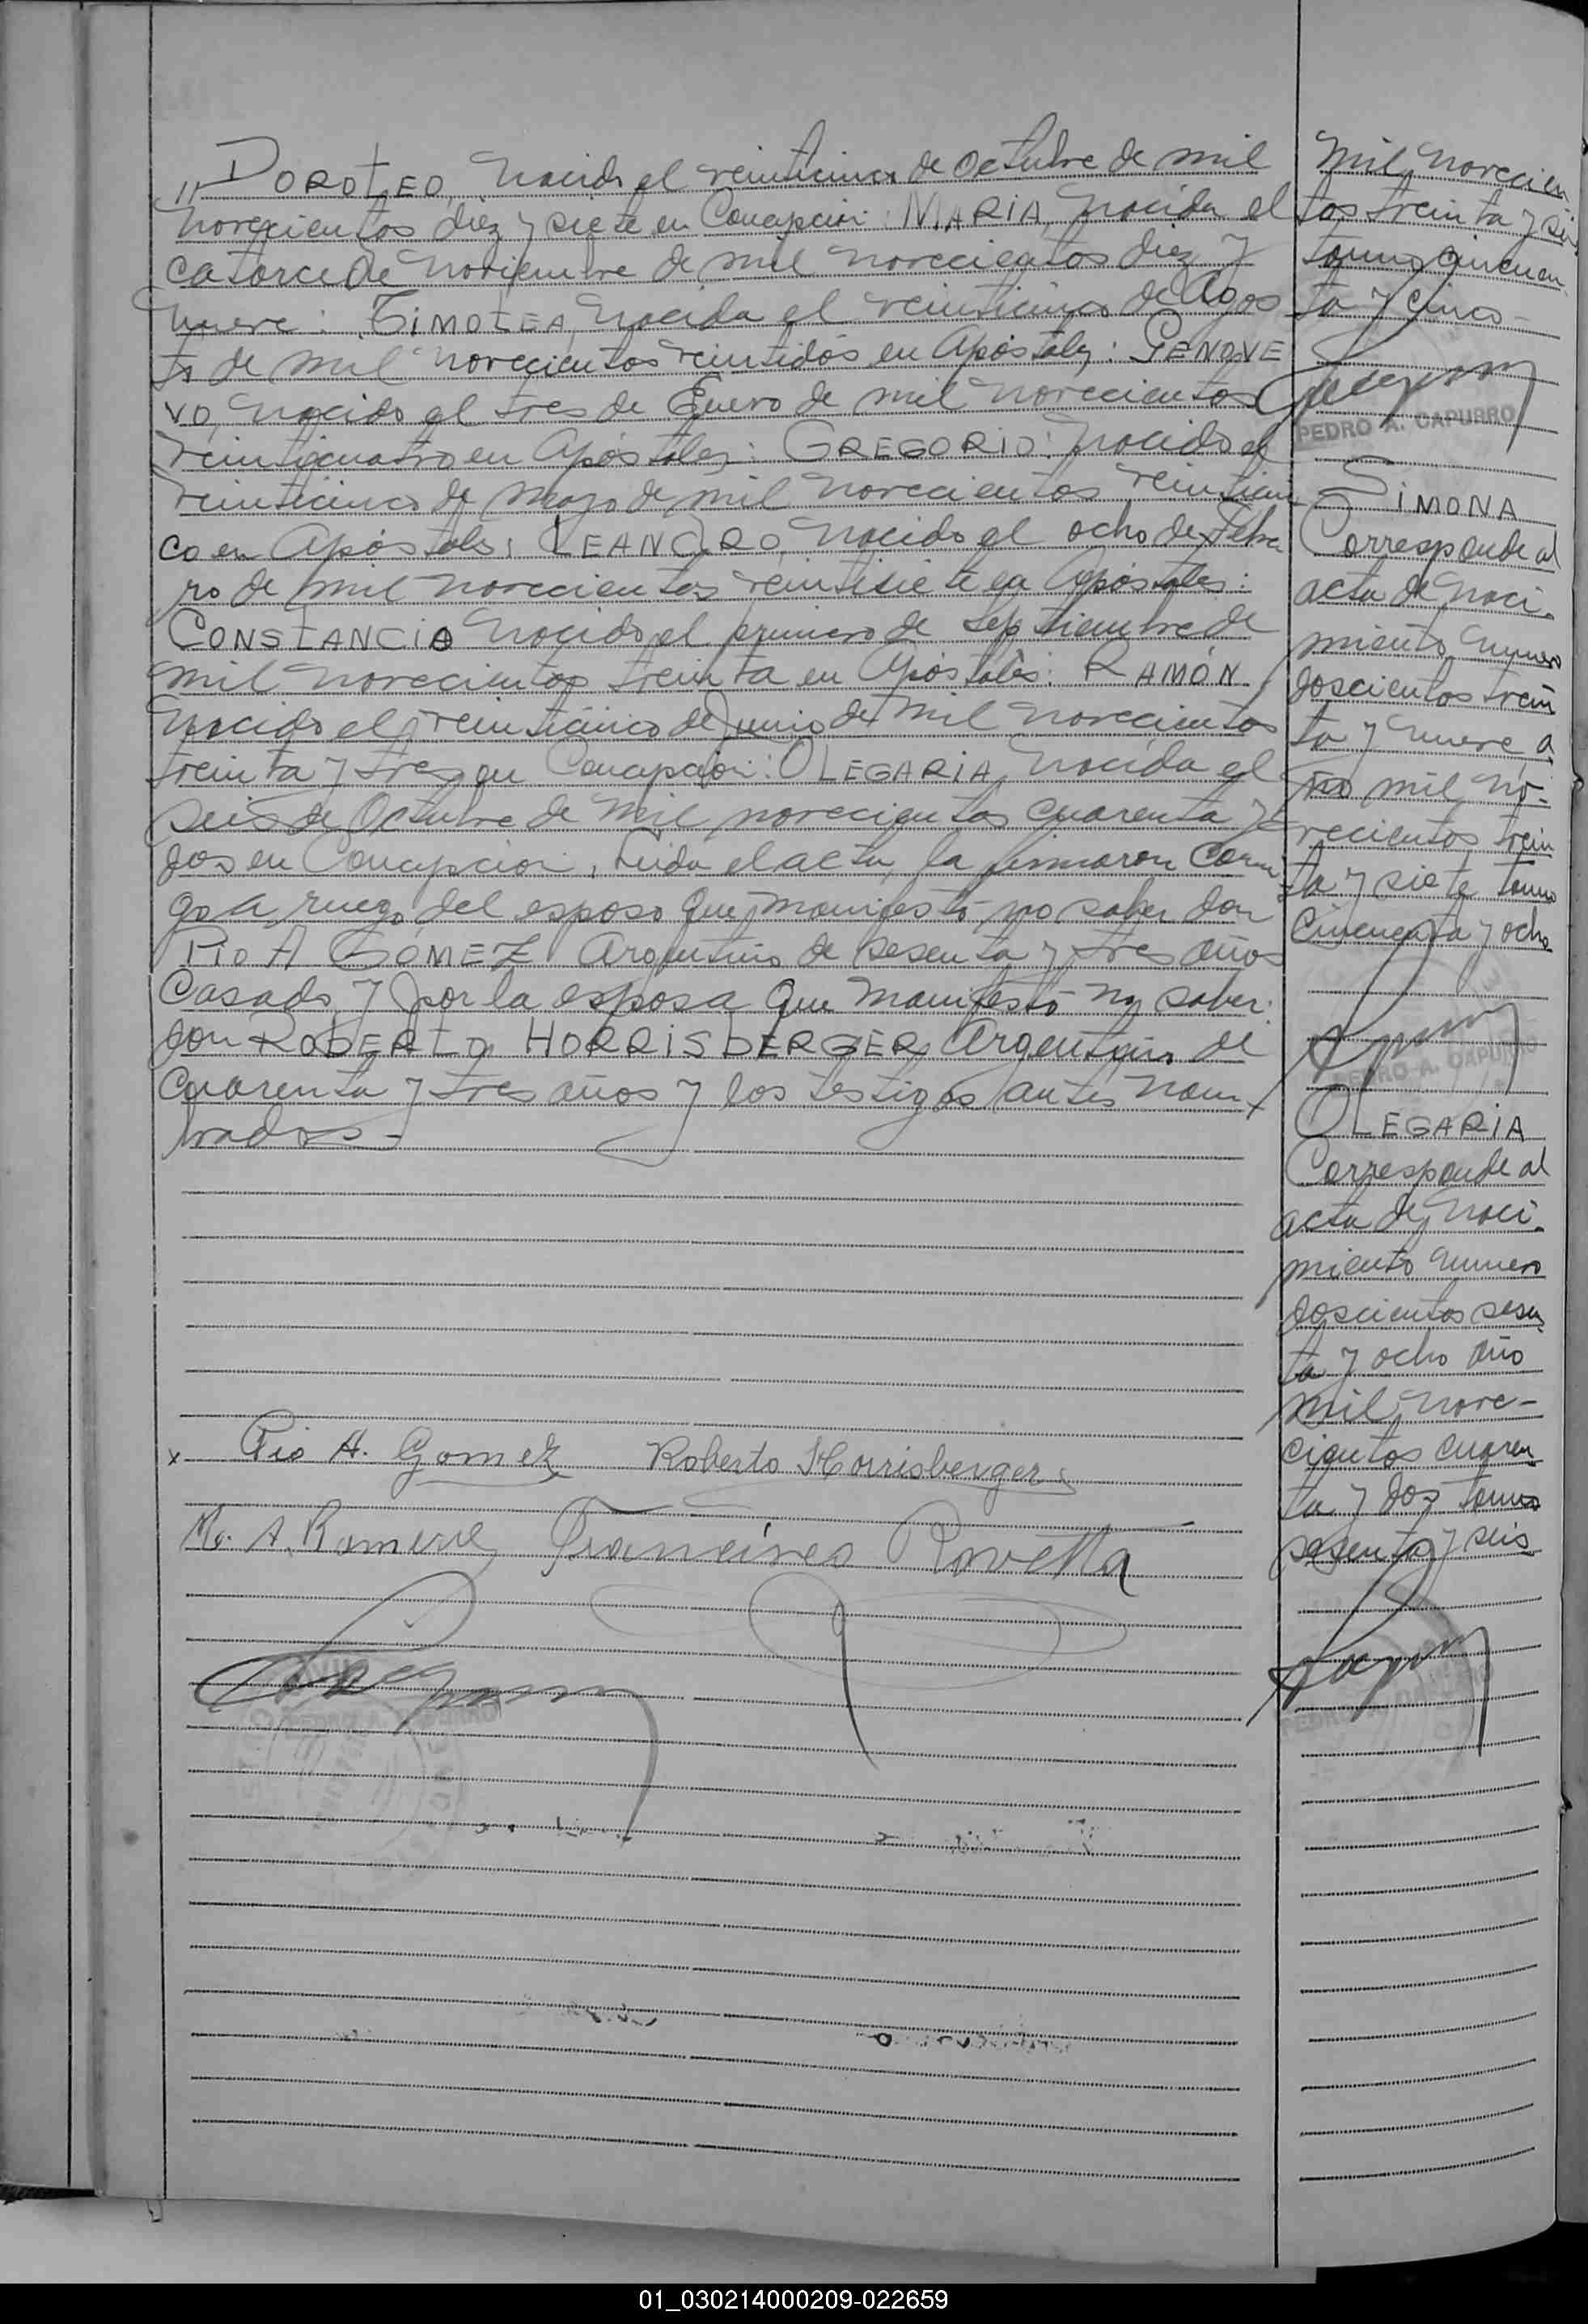 " DOROTEO, nacido el veinticinco de Octubre de mil
novecientos diez y siete en Concepción: MARIA, nacida el
catorce de Noviembre de mil novecientos diez y
nueve: TIMOTEA, nacida el veinticinco de Agos
to de mil novecientos veintidós en Apóstoles: GENOVE
VO, nacido el tres de Enero de mil novecientos
veinticuatro en Apóstoles: GREGORIO: nacido el
veinticinco de mayo de mil novecientos veinticin
co en Apóstoles: LEANDRO, nacido el ocho de Febre
ro de mil novecientos veintisiete en Apóstoles:
CONSTANCIO nacido el primero de Septiembre de
mil novecientos treinta en Apóstoles: RAMÓN
nacido el veinticinco de Junio de mil novecientos
treinta y tres en Concepción: OLEGARIA, nacida el
seis de Octubre de mil novecientos cuarenta y
dos en Concepción. Leida el acta, la firmaron conmi
go a ruego del esposo que manifestó no saber don
PIO A GÓMEZ Argentino de sesenta y tres años
Casado y por la esposa que manifestó no saber
don ROBERTO HORRISBERGER, Argentino de
cuarenta y tres años y los testigos antes nom
brados.-
Pio A. Gomez Roberto Horrisberger
M. A. Ramirez Francisco Rovetta
PEDRO A. CAPURRO
mil novecien
tos treinta y
tomo cincuen
ta y cinco-
PEDRO A. CAPURRO
SIMONA
Corresponde al
acta de naci-
miento numero
doscientos trein
ta y nueve a
ño mil no-
vecientos trein
ta y siete tomo
cincuenta y ocho
PEDRO A. CAPURRO
OLEGARIA
Corresponde al
acta de naci-
miento numero
doscientos sesen
ta y ocho año
mil nove-
cientos cuaren
ta y dos tomo
sesenta y seis
PEDRO A. CAPURRO
01_030214000209-022659